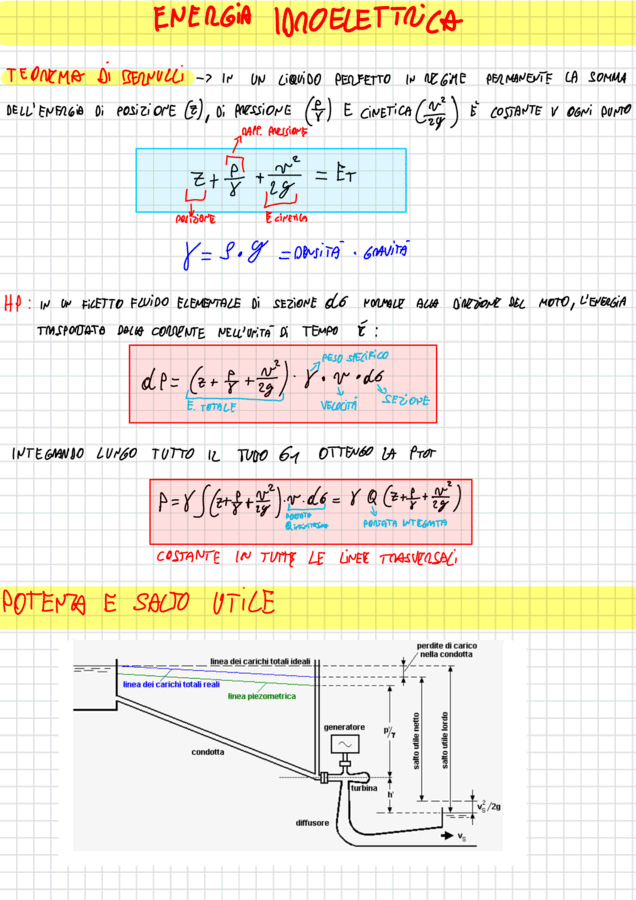 ENERGIA IDROELETTRICA
TEOREMA DI BERNULLI -> IN UN LIQUIDO PERFETTO IN REGIME PERMANENTE LA SOMMA
DELL'ENERGIA DI POSIZIONE (z), DI PRESSIONE (P/γ) E CINETICA (v²/2g) È COSTANTE ∀ OGNI PUNTO
RAPP. PRESSIONE
z + P/γ + v²/2g = E_T
POSIZIONE
E CINETICA
γ = ρ · g = DENSITÀ · GRAVITÀ
HP: IN UN FILETTO FLUIDO ELEMENTALE DI SEZIONE dσ NORMALE ALLA DIREZIONE DEL MOTO, L'ENERGIA
TRASPORTATA DALLA CORRENTE NELL'UNITÀ DI TEMPO È:
PESO SPECIFICO
dP = (z + P/γ + v²/2g) · γ · v · dσ
E. TOTALE
VELOCITÀ
SEZIONE
INTEGRANDO LUNGO TUTTO IL TUBO σ1 OTTENGO LA PTOT
P = γ ∫(z + P/γ + v²/2g) · v · dσ = γ Q (z + P/γ + v²/2g)
PORTATA
PORTATA INTEGRATA
COSTANTE IN TUTTE LE LINEE TRASVERSALI
POTENZA E SALTO UTILE
perdite di carico
nella condotta
linea dei carichi totali ideali
linea dei carichi totali reali
linea piezometrica
generatore
p/γ
salto utile netto
salto utile lordo
condotta
turbina
h'
v_s²/2g
diffusore
v_s